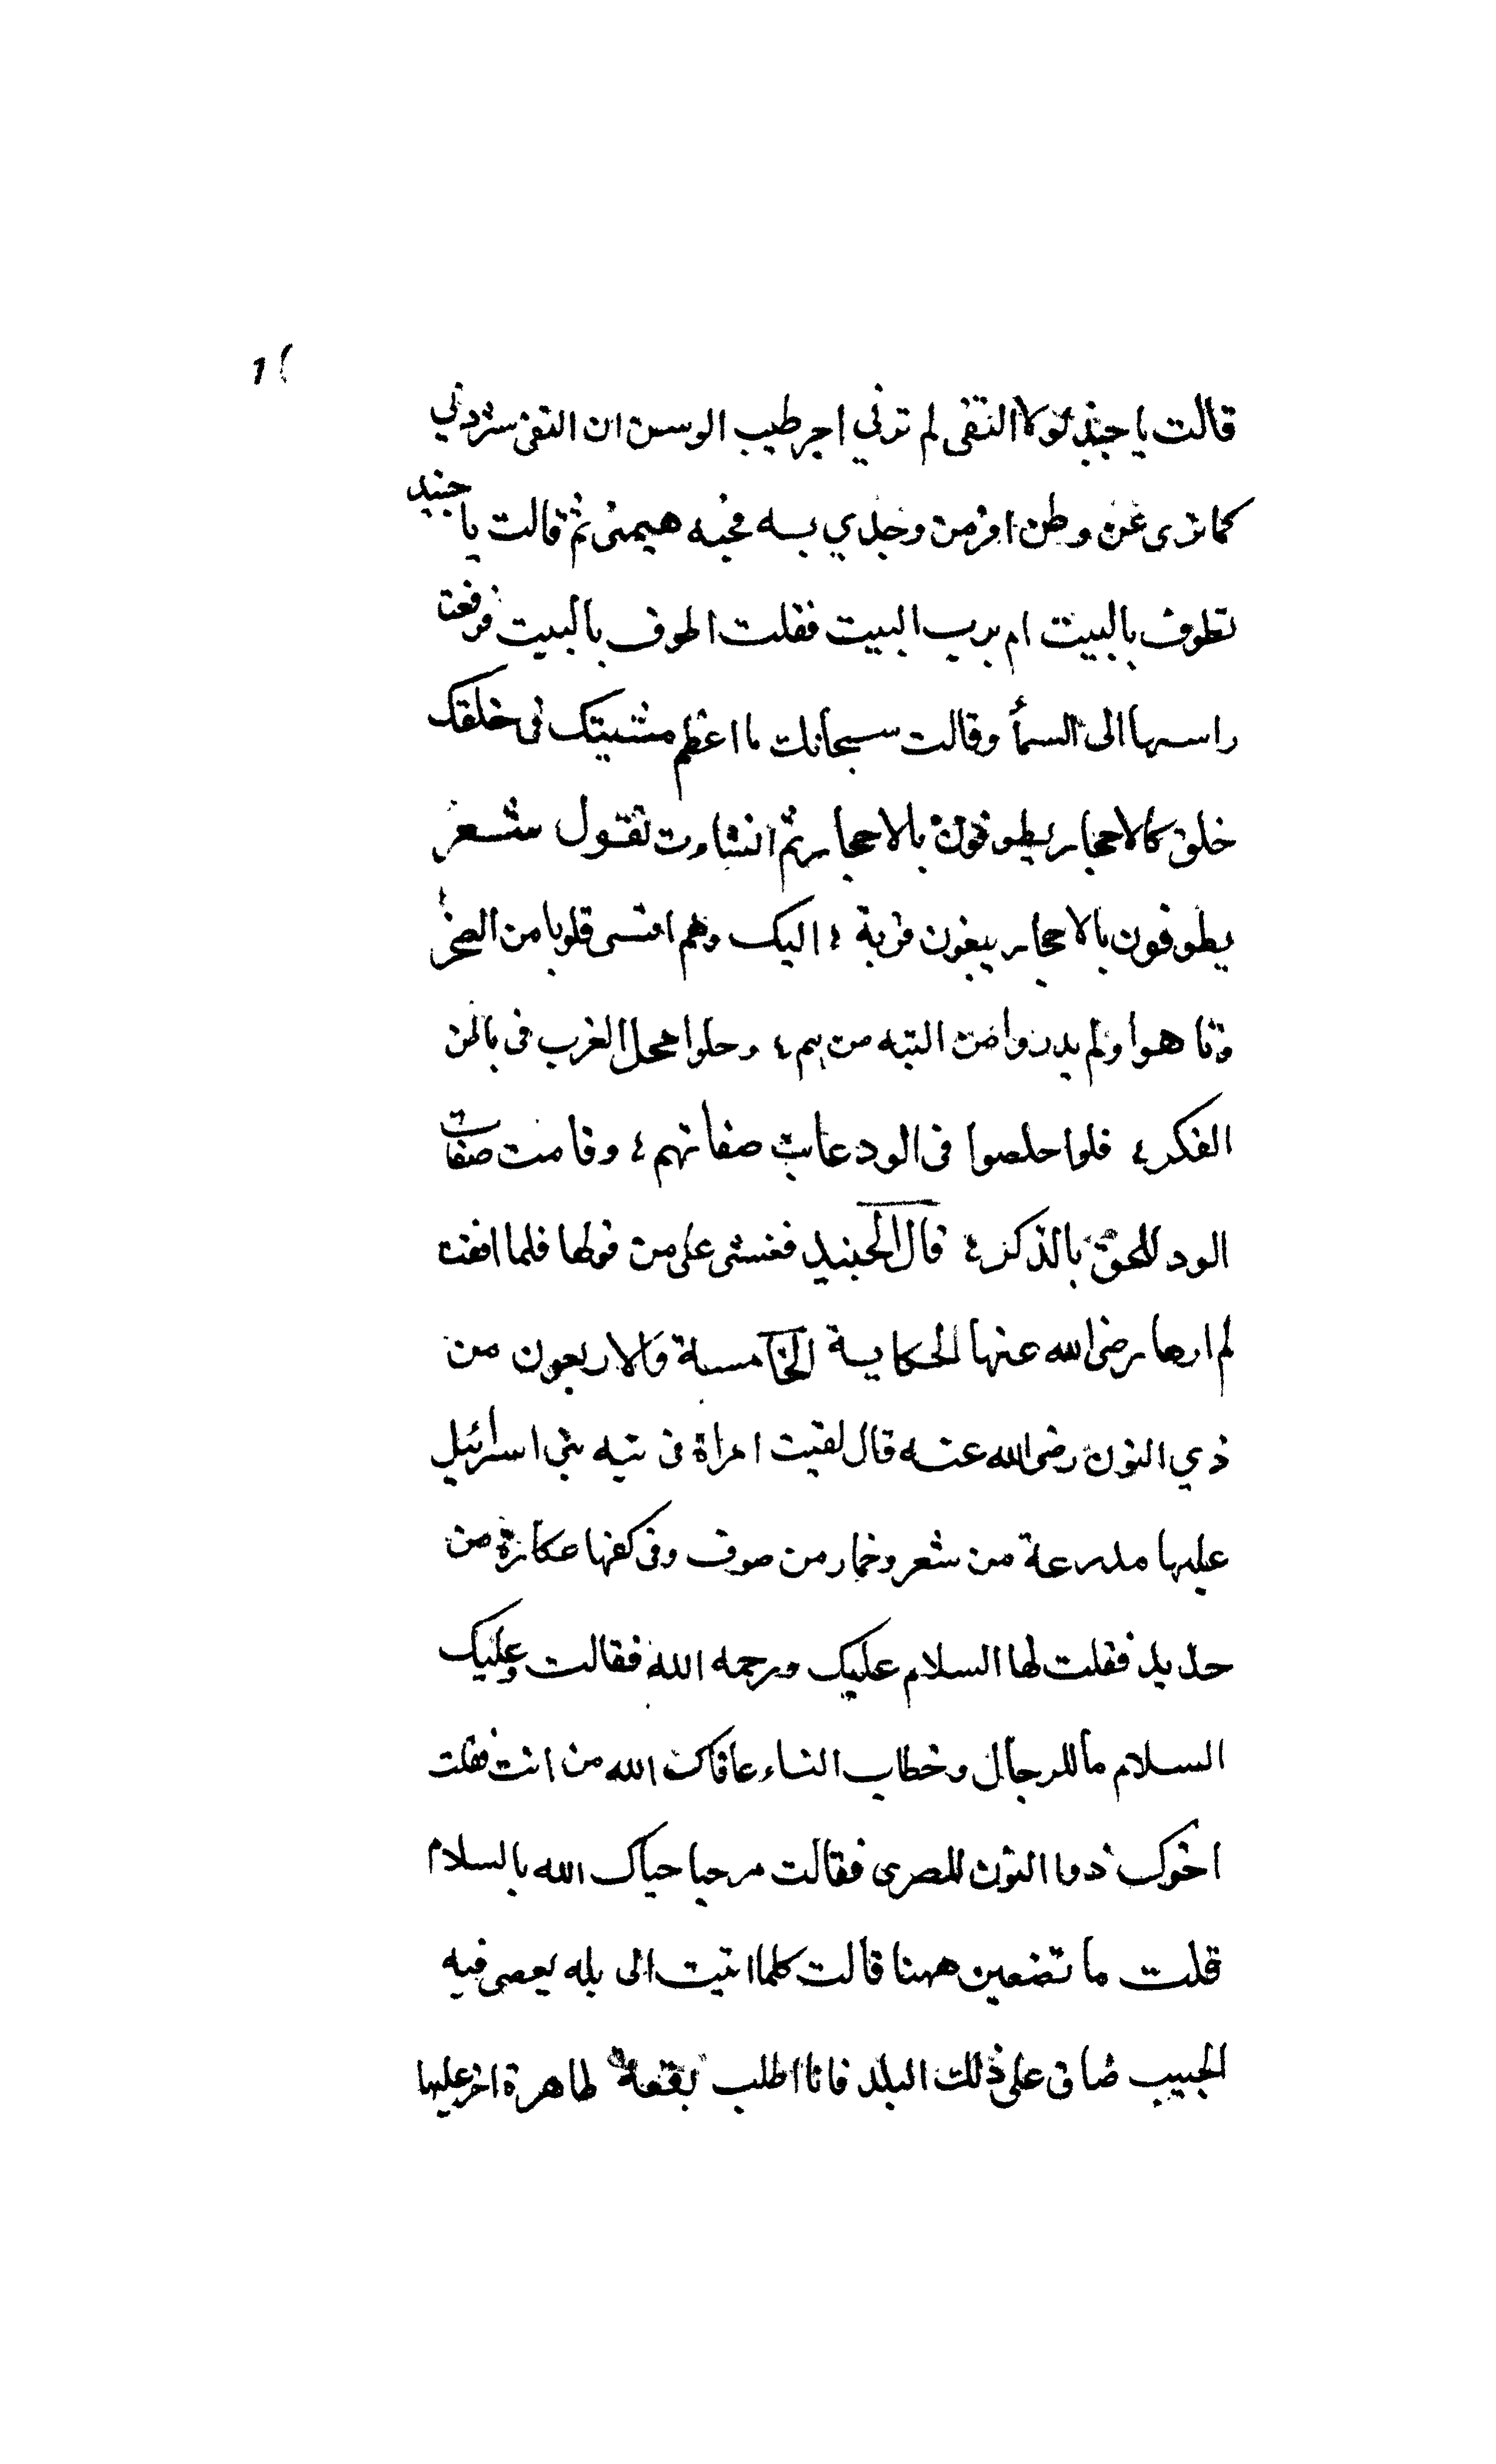 قالت يا جنيد لولا التقى لم ترني اهجر طيب الوسن ان التقى شردني
كما ترى عن وطن افر من وجدي به فحبه هيمنى ثم قالت يا جنيد
تطوف بالبيت ام برب البيت فقلت اطوف بالبيت فرفعت
راسها الى السمأ وقالت سبحانك ما اعظم مشيتك فى خلقك
خلق كالاحجار يطوفون بالاحجار ثم انشاءت تقول شعر
يطوفون بالاحجار يبغون قربة ؛ اليك وهم اقسى قلوبا من الصخر
وتاهوا ولم يدروا من التيه من هم ؛ وحلوا محل القرب فى باطن
الفكر ؛ فلو اخلصوا فى الود غابت صفاتهم ؛ وقامت صفات
الود للحق بالذكر ؛ قال الجنيد فغشى على من قولها فلما افقت
لم ارها رضى الله عنها الحكاية الخامسة والاربعون من
ذي النون رضى الله عنه قال لقيت امراة فى تيه بني اسرائيل
عليها مدرعة من شعر وخمار من صوف وفى كفها عكازة من
حديد فقلت لها السلام عليك ورحمه الله فقالت وعليك
السلام ما للرجال وخطاب النساء عافاك الله من انت فقلت
اخوك ذوا النون المصرى فقالت مرحبا حياك الله بالسلام
قلت ما تضعين ههنا قالت كلما اتيت الى بله يعصى فيه
الحبيب ضاق على ذلك البلد فانا اطلب بقعة طاهرة اخر عليها